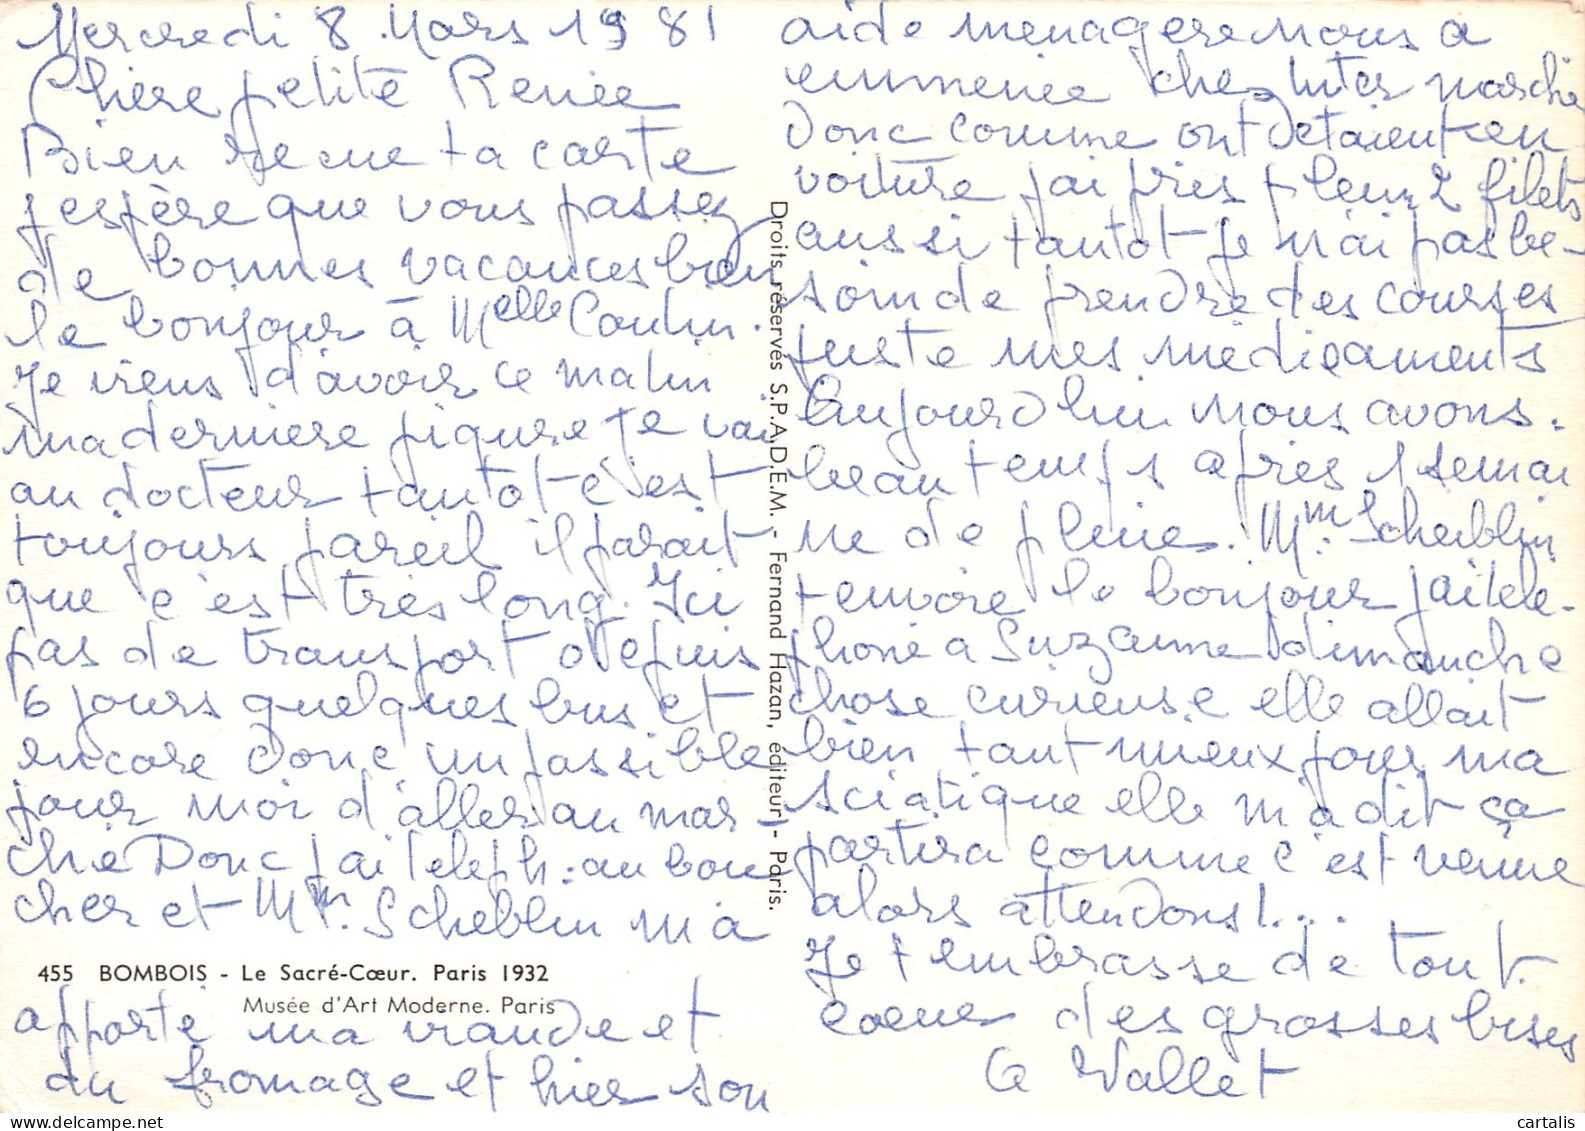 Mercredi 8 Mars 1981
Chère petite Renée
Bien reçue ta carte
j'espère que vous passez
de bonnes vacances bien
le bonjour à Melle Coulin.
Je viens d'avoir ce matin
ma dernière piqure je vai
au docteur tantot c'est
toujours pareil il parait
que c'est très long. Ici
pas de transport depuis
6 jours quelques bus et
encore donc impossible
pour moi d'aller au mar-
ché Donc j'ai téléph: au bou
cher et Mm. Scheblin m'a
455 BOMBOIS - Le Sacré-Cœur. Paris 1932
Musée d'Art Moderne. Paris
apporté ma viande et
du fromage et hier son
Droits réservés S.P.A.D.E.M. - Fernand Hazan, éditeur - Paris.
aide menagère nous a
emmenée chez Inter marché
Donc comme ont etaient en
voiture j'ai pris plein 2 filets
aussi tantot je n'ai pas be-
soin de prendre des courses
juste mes médicaments
Aujourd'hui nous avons
beau temps après 1 semai
ne de pluie. Mm. Scheiblin
t'envoie le bonjour j'ai télé-
phoné a Suzanne dimanche
chose curieuse elle allait
bien tant mieux pour ma
sciatique elle m'a dit ça
partira comme c'est venue
alors attendons!...
Je t'embrasse de tout
coeur des grosses bises
G Vallet
cartalis